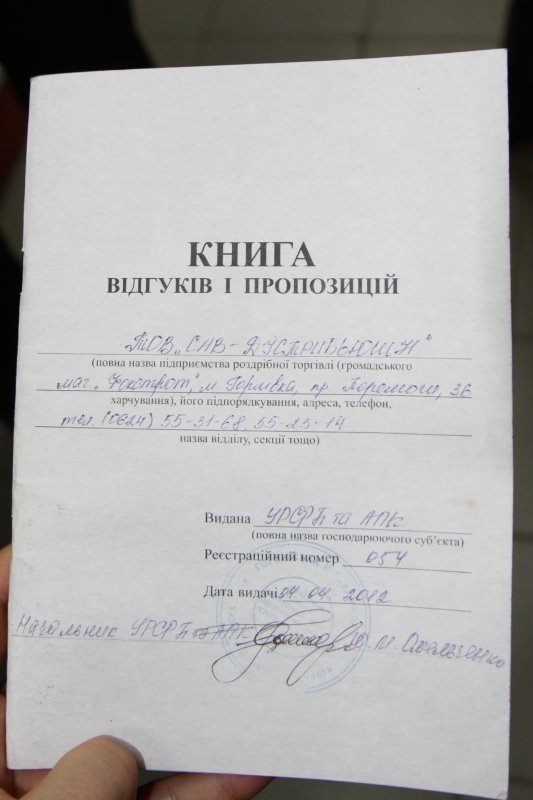 КНИГА
ВІДГУКІВ І ПРОПОЗИЦІЙ
ТОВ „САВ-Дистрибьюшн"
(повна назва підприємства роздрібної торгівлі (громадського
маг. „Фокстрот", м. Горлівка, пр. Перемоги, 36
харчування), його підпорядкування, адреса, телефон,
тел. (0624) 55-31-68, 55-23-14
назва відділу, секції тощо)
Видана УРСРБ та АПК
(повна назва господарюючого суб'єкта)
Реєстраційний номер 054
Дата видачі 04. 04. 2012
Начальник УРСРБ та АПК М. Омельченко